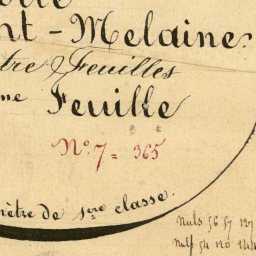 nt-Melaine.
tre Feuilles
me Feuille
N.º 7 = 365
mètre de 1ère classe.
Nuls 56 57 127
Nulf 54 120 124